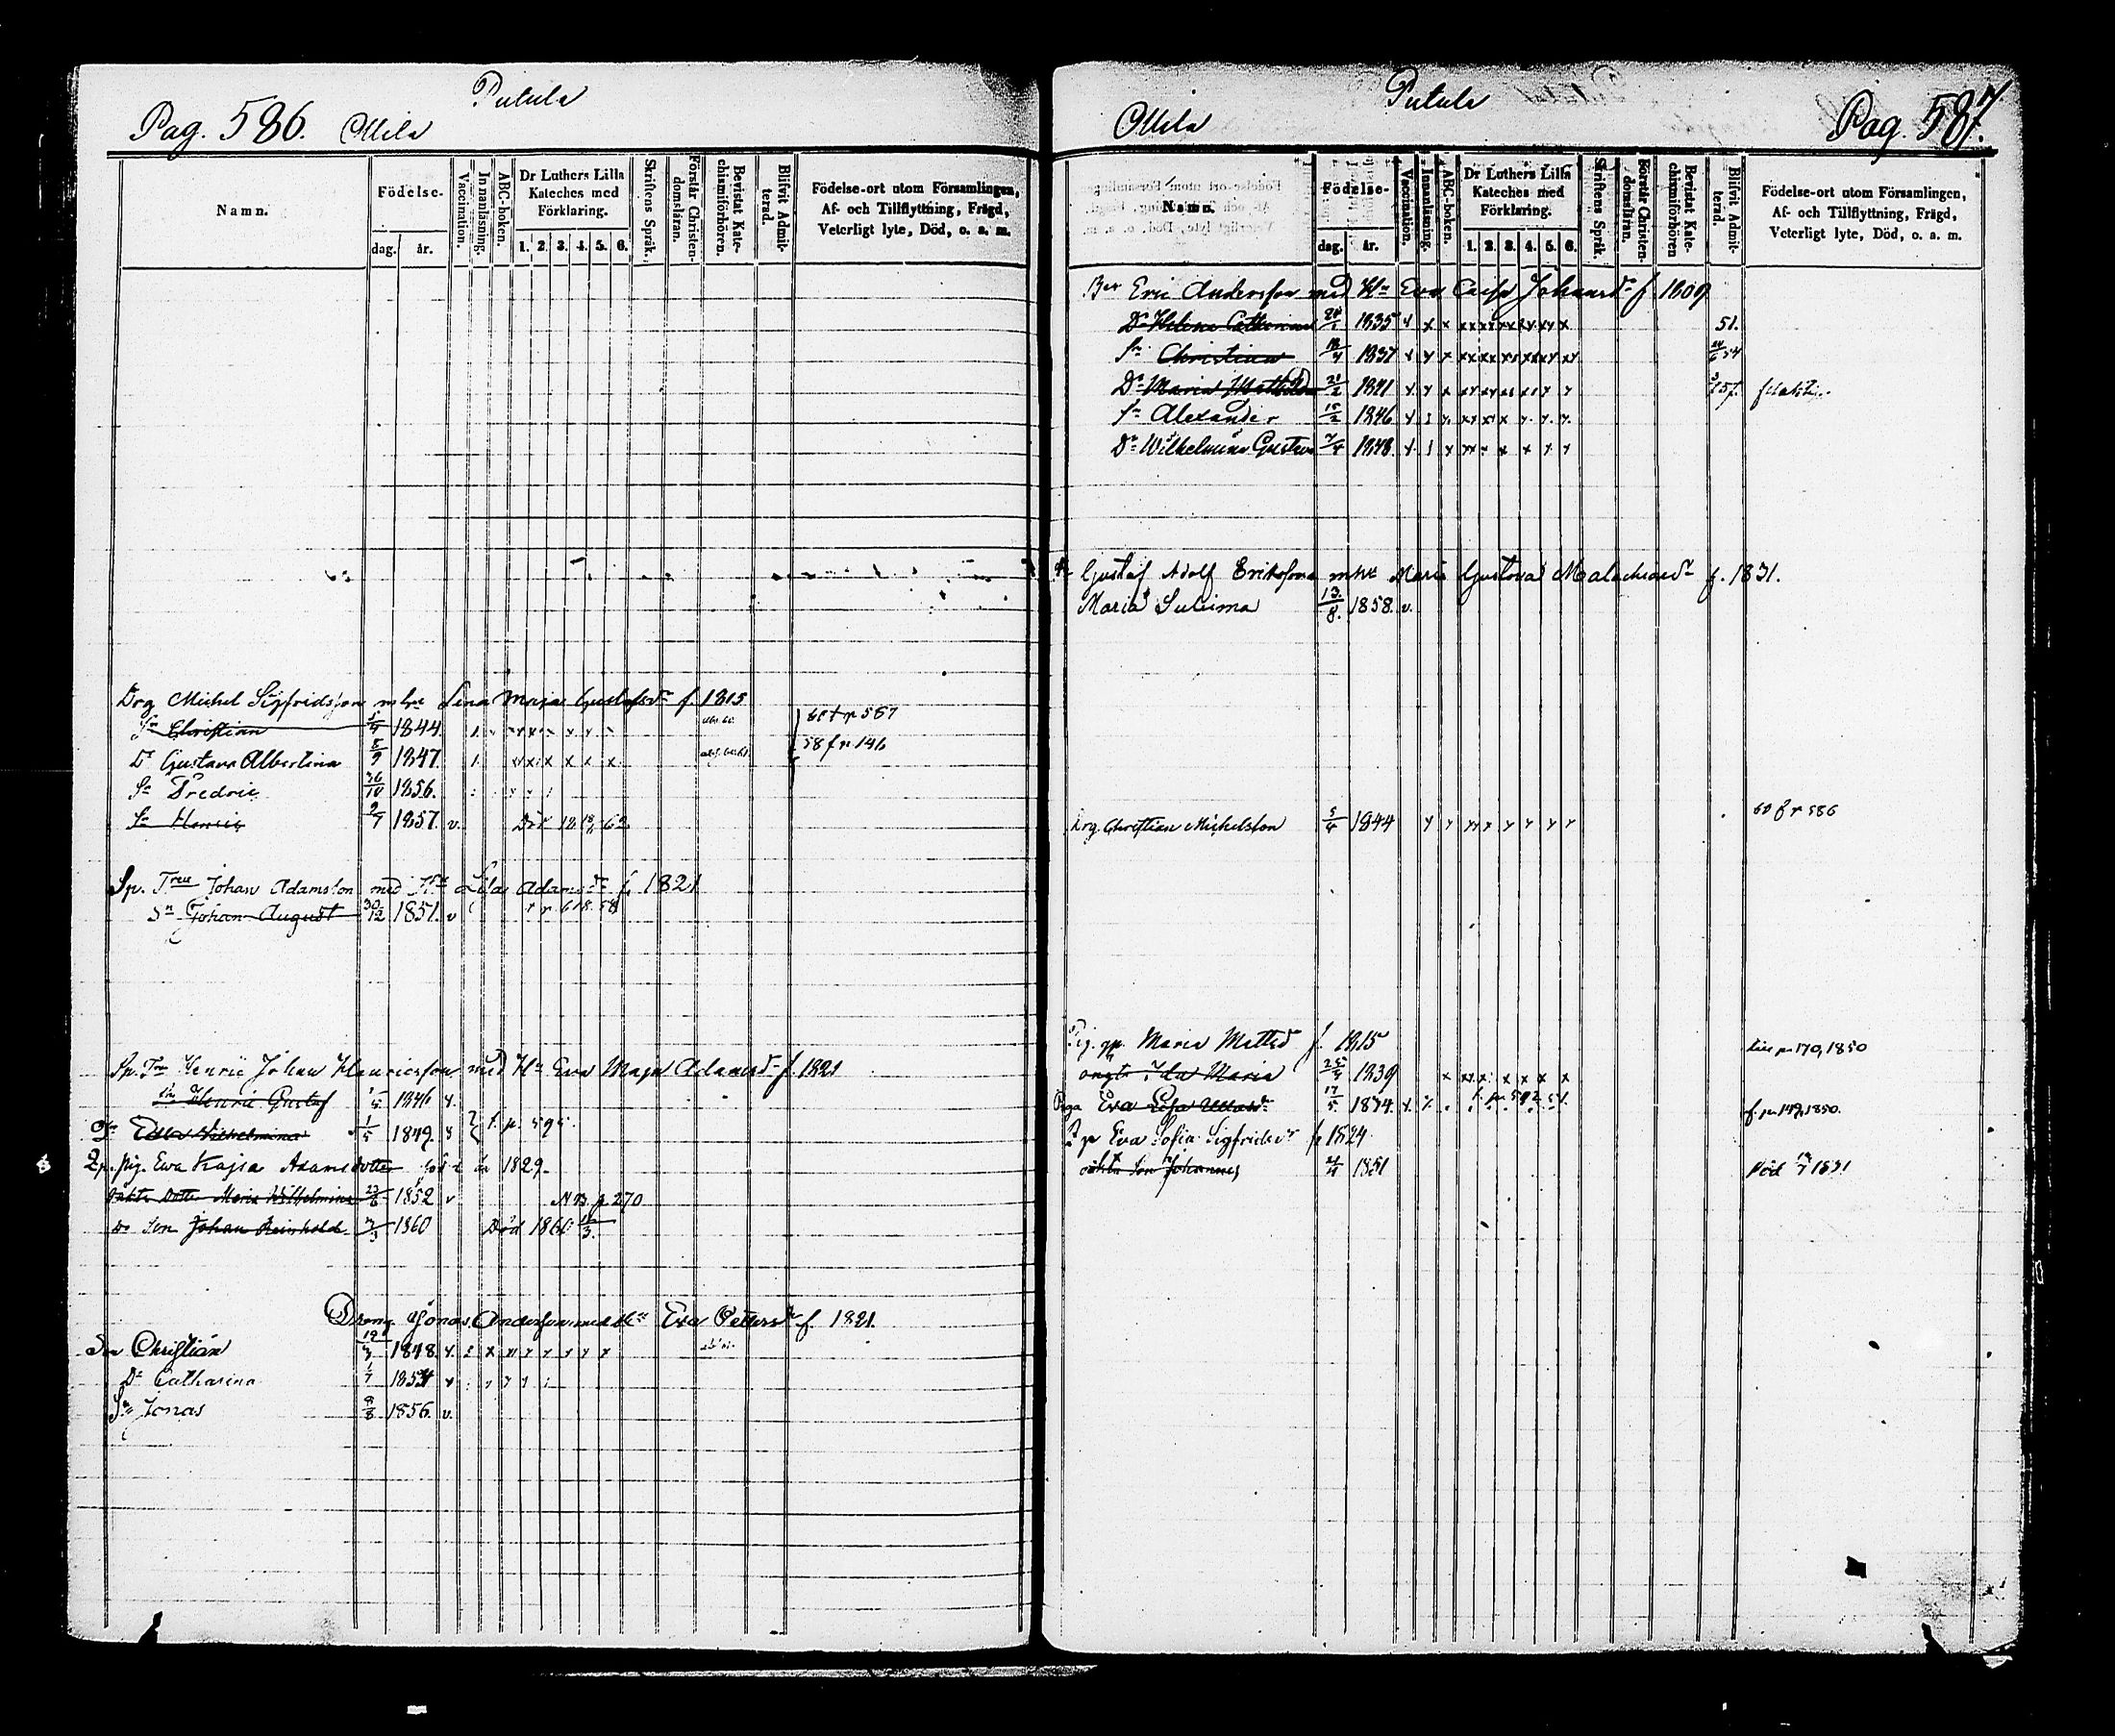 Putula
Pag. 586. Ollila
Namn.
Födelse-
dag. år.
Vaccination.
Innanläsning.
ABC-boken.
Dr Luthers Lilla Kateches med Förklaring.
1. 2. 3. 4. 5. 6.
Skriftens Språk.
Förstår Christendomsläran.
Bevistat Katechismiförhören.
Blifvit Admitterad.
Födelse-ort utom Församlingen,
Af- och Tillflyttning, Frägd,
Veterligt lyte, Död, o. a. m.
Drg Michel Sigfridsson m hu Lena Maja Gustafsdr f. 1815
Sn Christian 5/4 1844. 60 t p 587
Dr Gustava Albertina 8/9 1847. 58 f p 146
Sn Fredric 30/10 1856.
Sn Henric 2/7 1857. v. Död
Sp. Tren Johan Adamsson med Hu Lisa Adamsdr f. 1821
Sn Johan August 30/12 1851. v t p 618. 58
Sp. Tre Henric Johan Henricsson med Hu Eva Maja Adamsdr f. 1821
Sn Henric Gustaf 1/5 1846
Dr Edla Wilhelmina 1/5 1849. t. p. 595.
2 p. pig. Ewa Kajsa Adamsdotter född år 1829.
oäkta Dotter Maria Wilhelmina 23/6 1852 v NB. p 270
Do Son Johan Reinhold 3/3 1860 Död 1860
Dreng Jonas Andersson med hu Eva Pettersdr f. 1821.
Son Christian 19/3 1848.
Dr Catharina 1/7 1854
Sn Jonas 8/8 1856. v.
Putula
Ollila Pag. 587.
Namn.
Födelse-
dag. år.
Vaccination.
Innanläsning.
ABC-boken.
Dr Luthers Lilla Kateches med Förklaring.
1. 2. 3. 4. 5. 6.
Skriftens Språk.
Förstår Christendomsläran.
Bevistat Katechismiförhören
Blifvit Admitterad.
Födelse-ort utom Församlingen,
Af- och Tillflyttning, Frägd,
Veterligt lyte, Död, o. a. m.
Eric Andersson med Hu Eva Caisa Johansdr f. 1809
Dr Helena Catharina 1835 51.
Sn Christian 18/4 1837
Dr Maria Mathilda 21/2 1841 57.
Sn Alexander 15/2 1846
Dr Wilhelmina Gustava 7/4 1848.
Gustaf Adolf Eriksson m hu Maria Gustava Malachiasdr f. 1831.
Maria Sulima 13/8. 1858. v.
Drg. Christian Michelsson 5/4 1844 60 f p 586
Pig. Maria Mattsd f. 1815 p 170, 1850
oägta Ida Maria 25/4 1839
Piga Eva Lisa 17/5. 1834. f. p 149, 1850.
2 p Eva Sofia Sigfridsdr f 1824
oäkta Son Johannes 1851 Död 1851